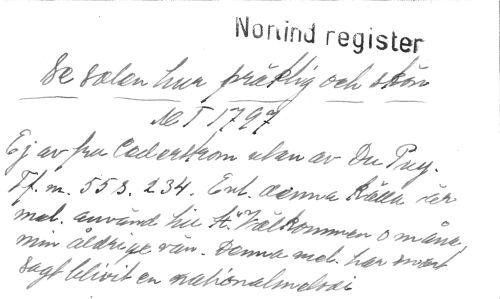 Norlind register
Se solen hur präktig och skön
MT 1797
Ej av fru Cederstrom utan av Du Puy.
Tf. m. 55 s. 234. Enl. denna källa är
mel. använd till st. "Välkommen o måne,
min åldrige vän. Denna mel. har snart
sagt blivit en nationalmelodi